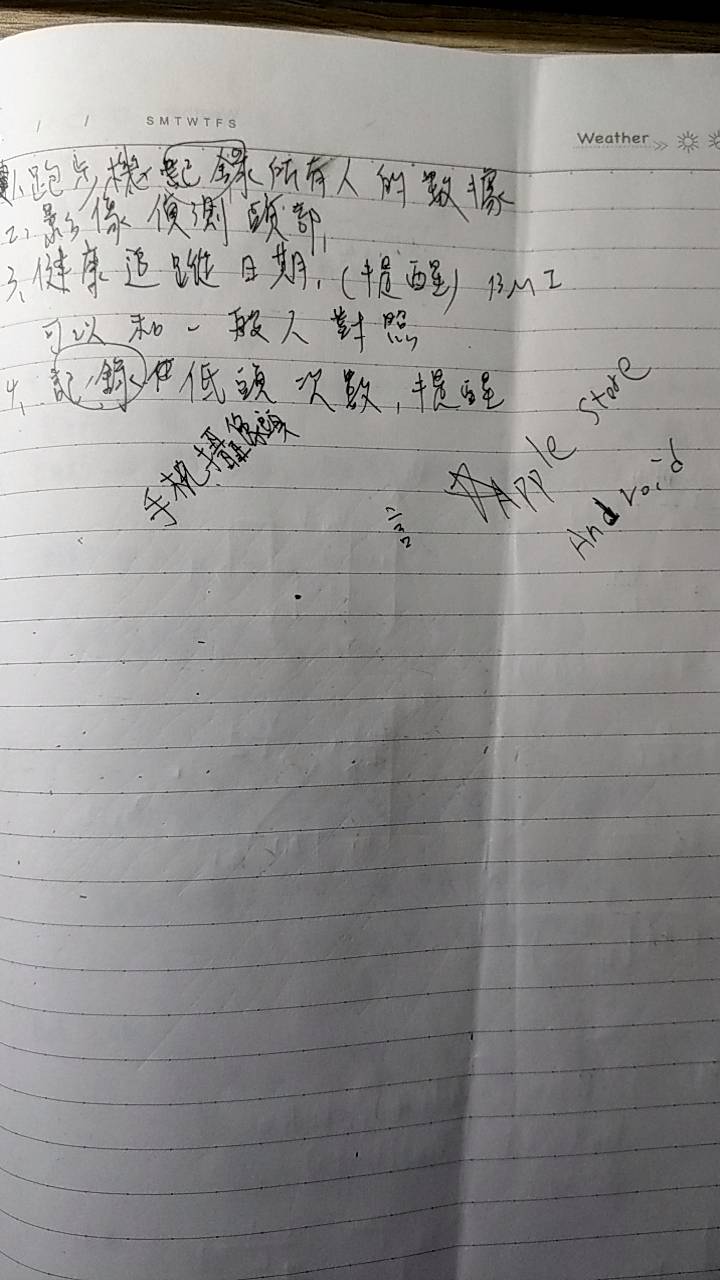 / / SMTWTFS
Weather
1. 跑步機 記錄所有人的數據
2. 影像偵測頭部,
3. 健康追蹤日期, (提醒) BMI
可以和一般人對照
4. 記錄 低頭次數, 提醒
手机攝像頭
Apple Store
Android